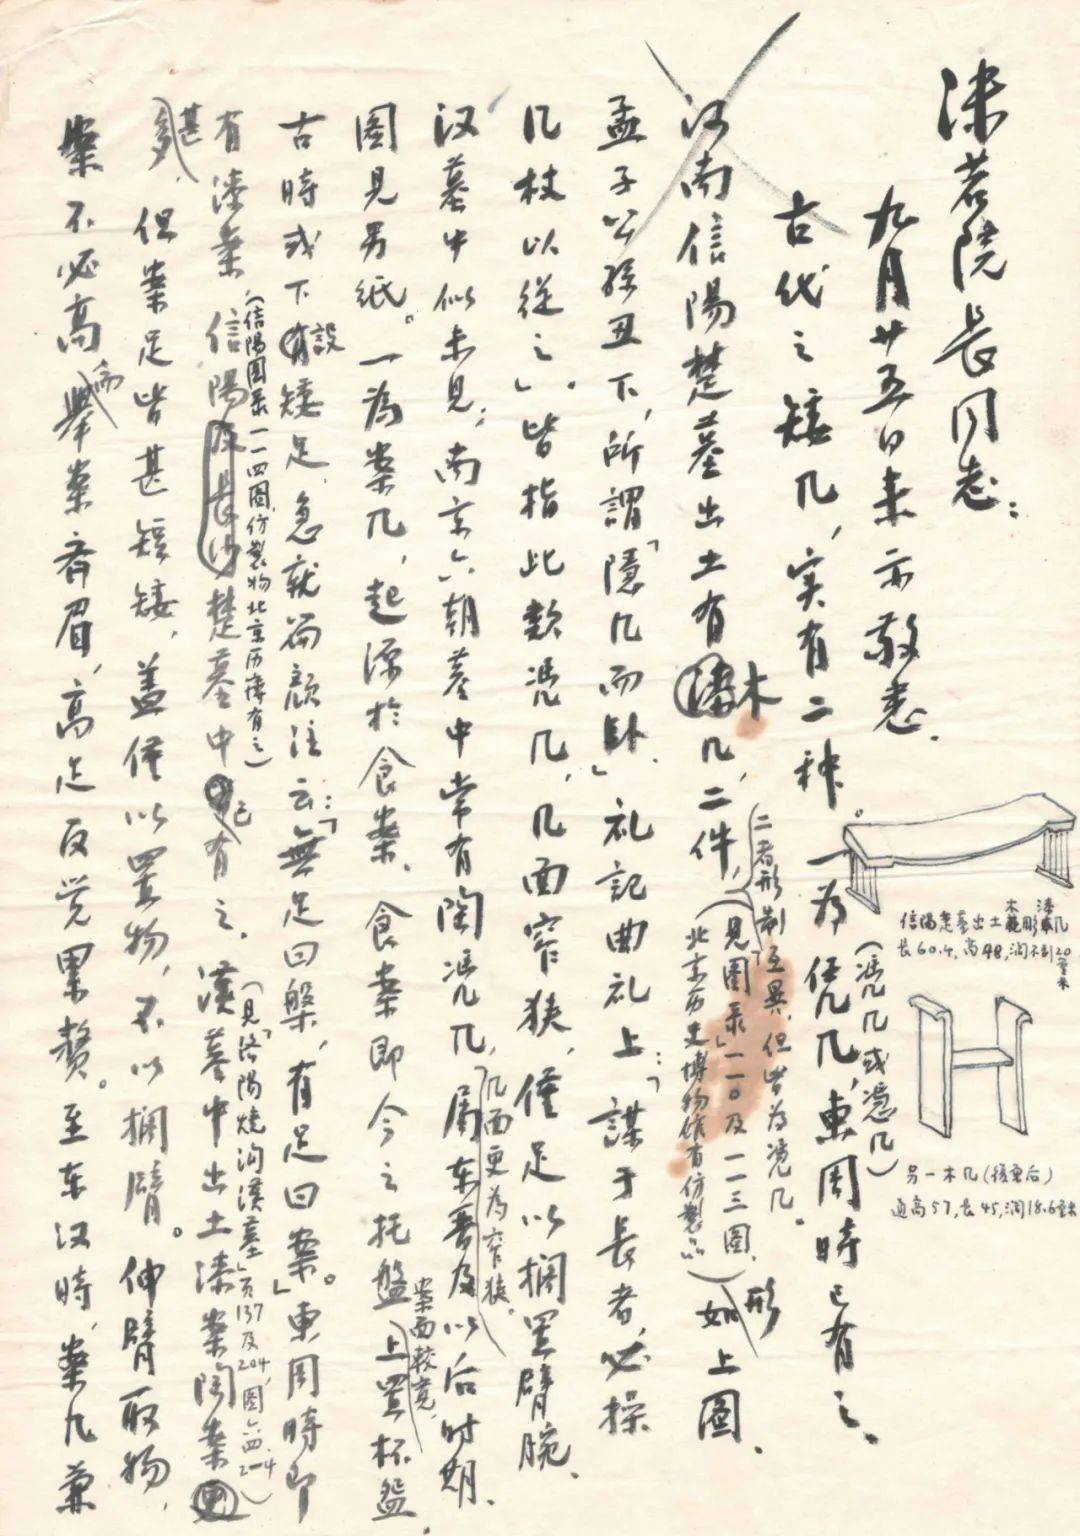 沫若院长同志：
九月廿五日来示敬悉．
古代之矮几，实有二种。一为凭几，東周時已有之．
（憑几或凴几）
河南信陽楚墓出土有木几，二件，（見「圖录」一一〇及一一三圖．形如上圖．
二者形制互異，但皆为凴几．
（北京历史博物馆有仿製品）
孟子公孫丑下，所謂「隱几而卧」礼記曲礼上：「謀于長者，必操
几杖以從之」．皆指此類凴几，几面窄狹，僅足以擱置臂腕．
汉墓中似未見；南京六朝墓中常有陶凴几，屬东晋及以后时期．
几面更为窄狹。
圖見另纸。一为案几，起源於食案．食案即今之托盤上置杯盌．
案面較寬，
古時或下設矮足．急就篇顔注云：「無足曰槃，有足曰案」。東周時即
有漆案，信陽及長沙楚墓中已有之．漢墓中出土漆案陶案
（信陽圖录一一四圖，仿製物北京历博有之）
（見「洛陽燒沟漢墓」頁137及204，圖六四．2—4）
甚多，但案足皆甚短矮，盖僅以置物，不以擱臂。伸臂取物，
案不必高，而舉案齊眉，高足反觉累赘。至东汉時，案几兼
信陽楚墓出土木彫漆几
长60.4，高48，濶不到20釐米
另一木几（後室后）
通高57，长45，濶18.6釐米